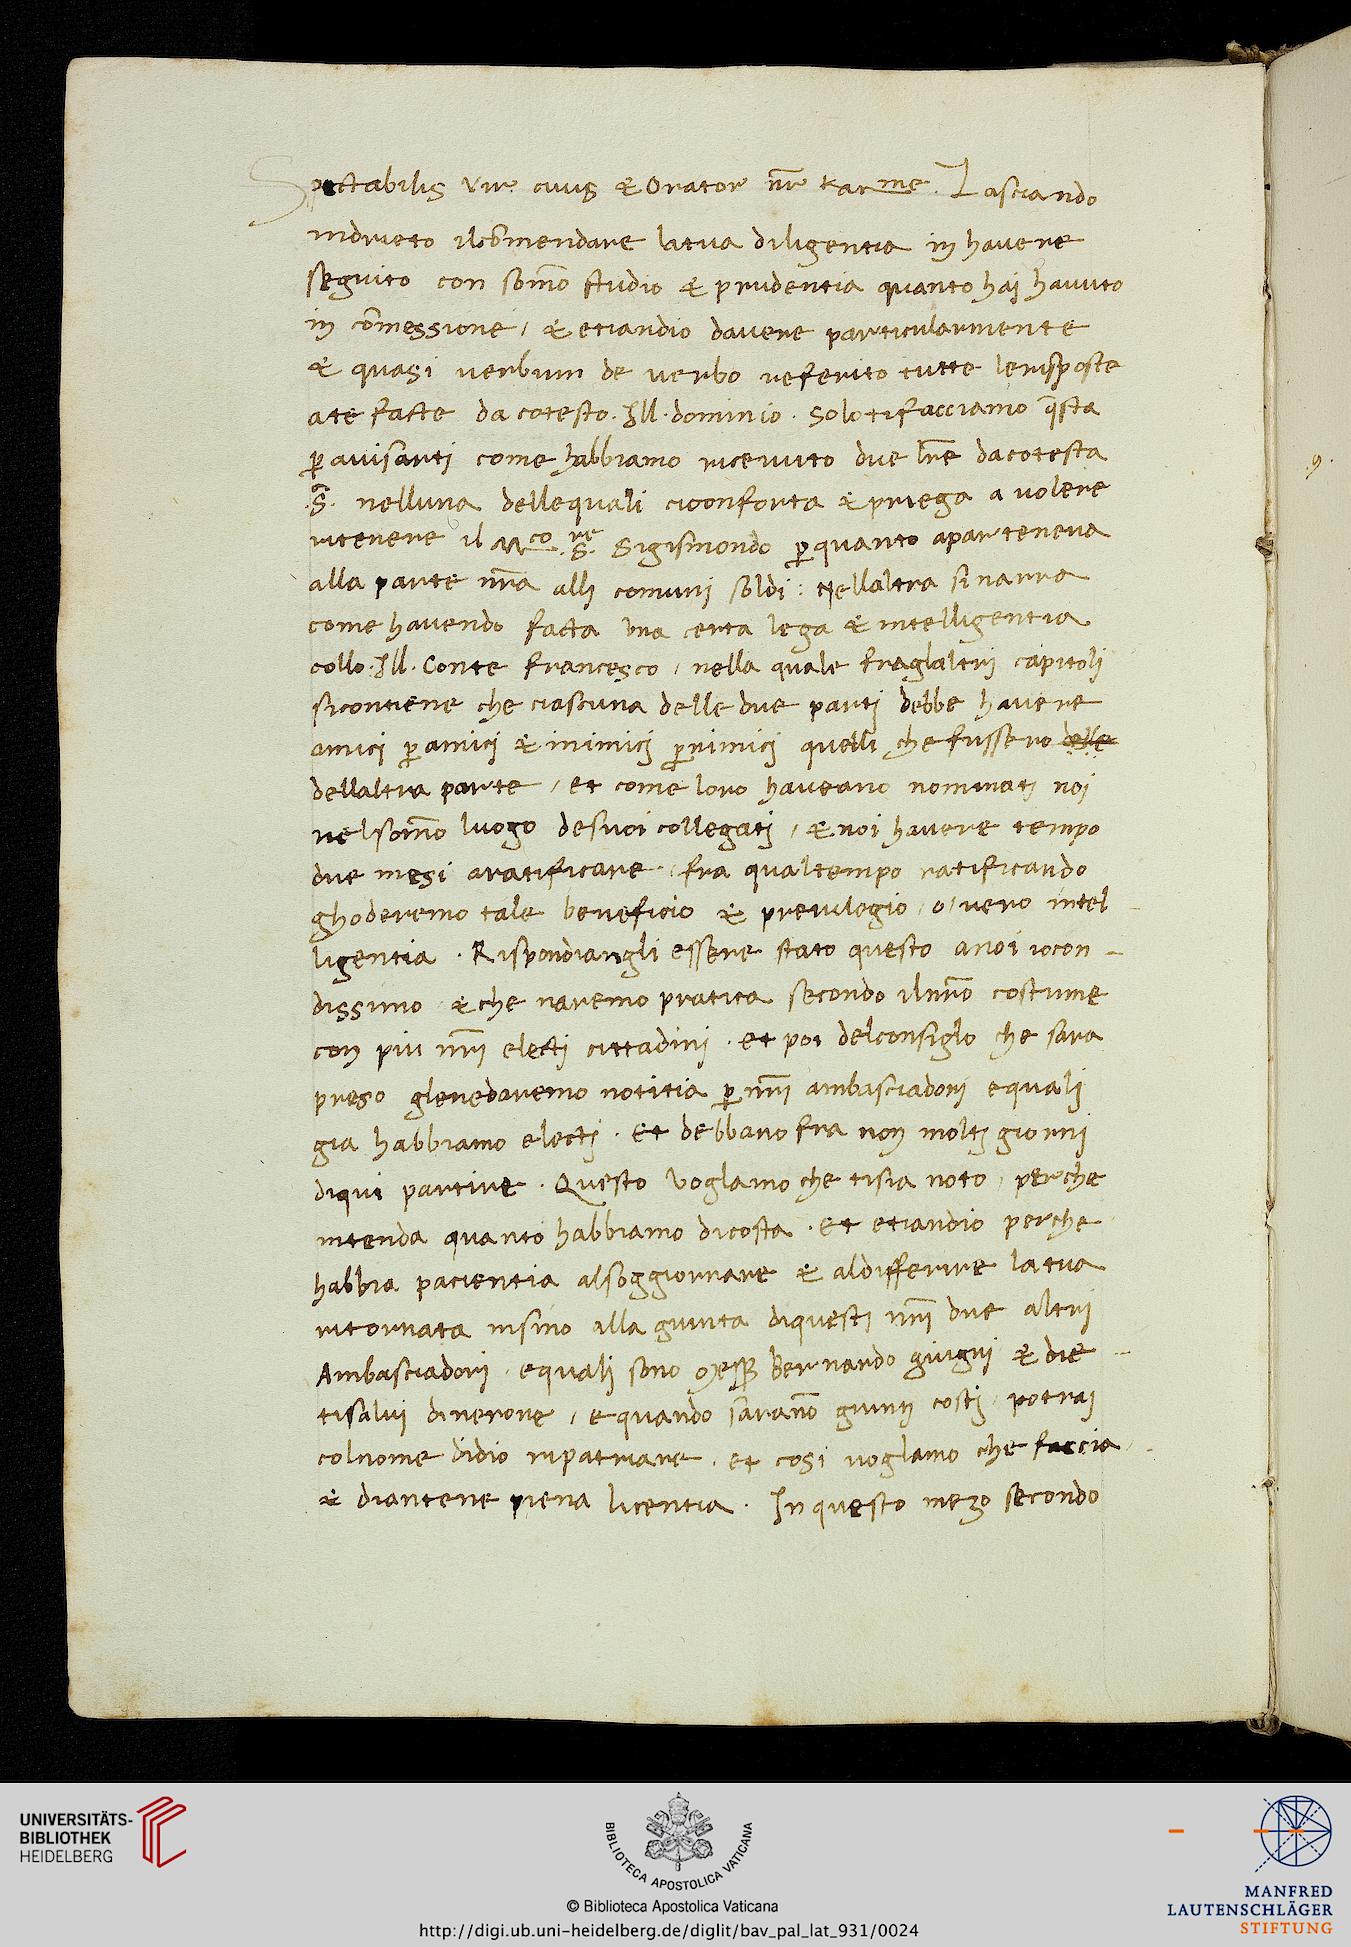 Spectabilis vir civis & Orator nr̄ kar me. Lasciando
indrieto ilcōmendare latua diligentia in havere
seguito con som̄o studio & prudentia quanto haj havuto
in cōmessione, & etiandio davere particularmente
& quasi verbum de verbo referito tutte lerisposte
ate facte da cotesto. Ill. dominio. Solo tifacciamo q̄sta
p̱ avisarti come habbiamo ricevuto due lr̄e dacotesta
.S.ᵃ nelluna dellequali ciconforta & priega a volere
ritenere il M.co S.re Sigismondo p̱quanto aparteneva
alla parte nr̄a allj comunj soldi: Nellaltra si narra
come havendo facta una certa lega & intelligentia
collo. Ill. Conte francesco, nella quale fraglaltrj capitolj
sicontiene che ciascuna delle due partj debbe havere
amici p̱ amicj & inimicj p̱ nimicj quelli che fussero delle
dellaltra parte, et come loro haveano nominatj noj
nelsom̄o luogo desuoi collegatj, & noi havere tempo
due mesi aratificare, fra qualtempo ratificando
ghoderemo tale beneficio & previlegio, o, vero intel-
ligentia. Rispondiangli essere stato questo anoi iocon-
dissimo & che naremo pratica secondo ilnr̄o costume
con piu nr̄i electj cittadinj. et poi delconsiglo che sara
preso glenedaremo notitia p̱ nr̄i ambasciadorj equalj
gia habbiamo electj. et debbano fra non moltj giornj
diqui partire. Questo voglamo che tisia noto, perche
intenda quanto habbiamo dicosta. et etiandio perche
habbia pacientia alsoggiornare & aldifferire latua
ritornata insino alla giunta diquestj nr̄i due altri
Ambasciadorj. equalj sono Mess̱ Bernardo giugnj & die-
tisalvi dinerone, e quando saran̄o giuntj costj, potraj
colnome didio ripatriare. et cosi voglamo che faccia
& diantene piena licentia. In questo mezo secondo
9.
UNIVERSITÄTS-
BIBLIOTHEK
HEIDELBERG
BIBLIOTECA APOSTOLICA VATICANA
© Biblioteca Apostolica Vaticana
http://digi.ub.uni-heidelberg.de/diglit/bav_pal_lat_931/0024
MANFRED
LAUTENSCHLÄGER
STIFTUNG